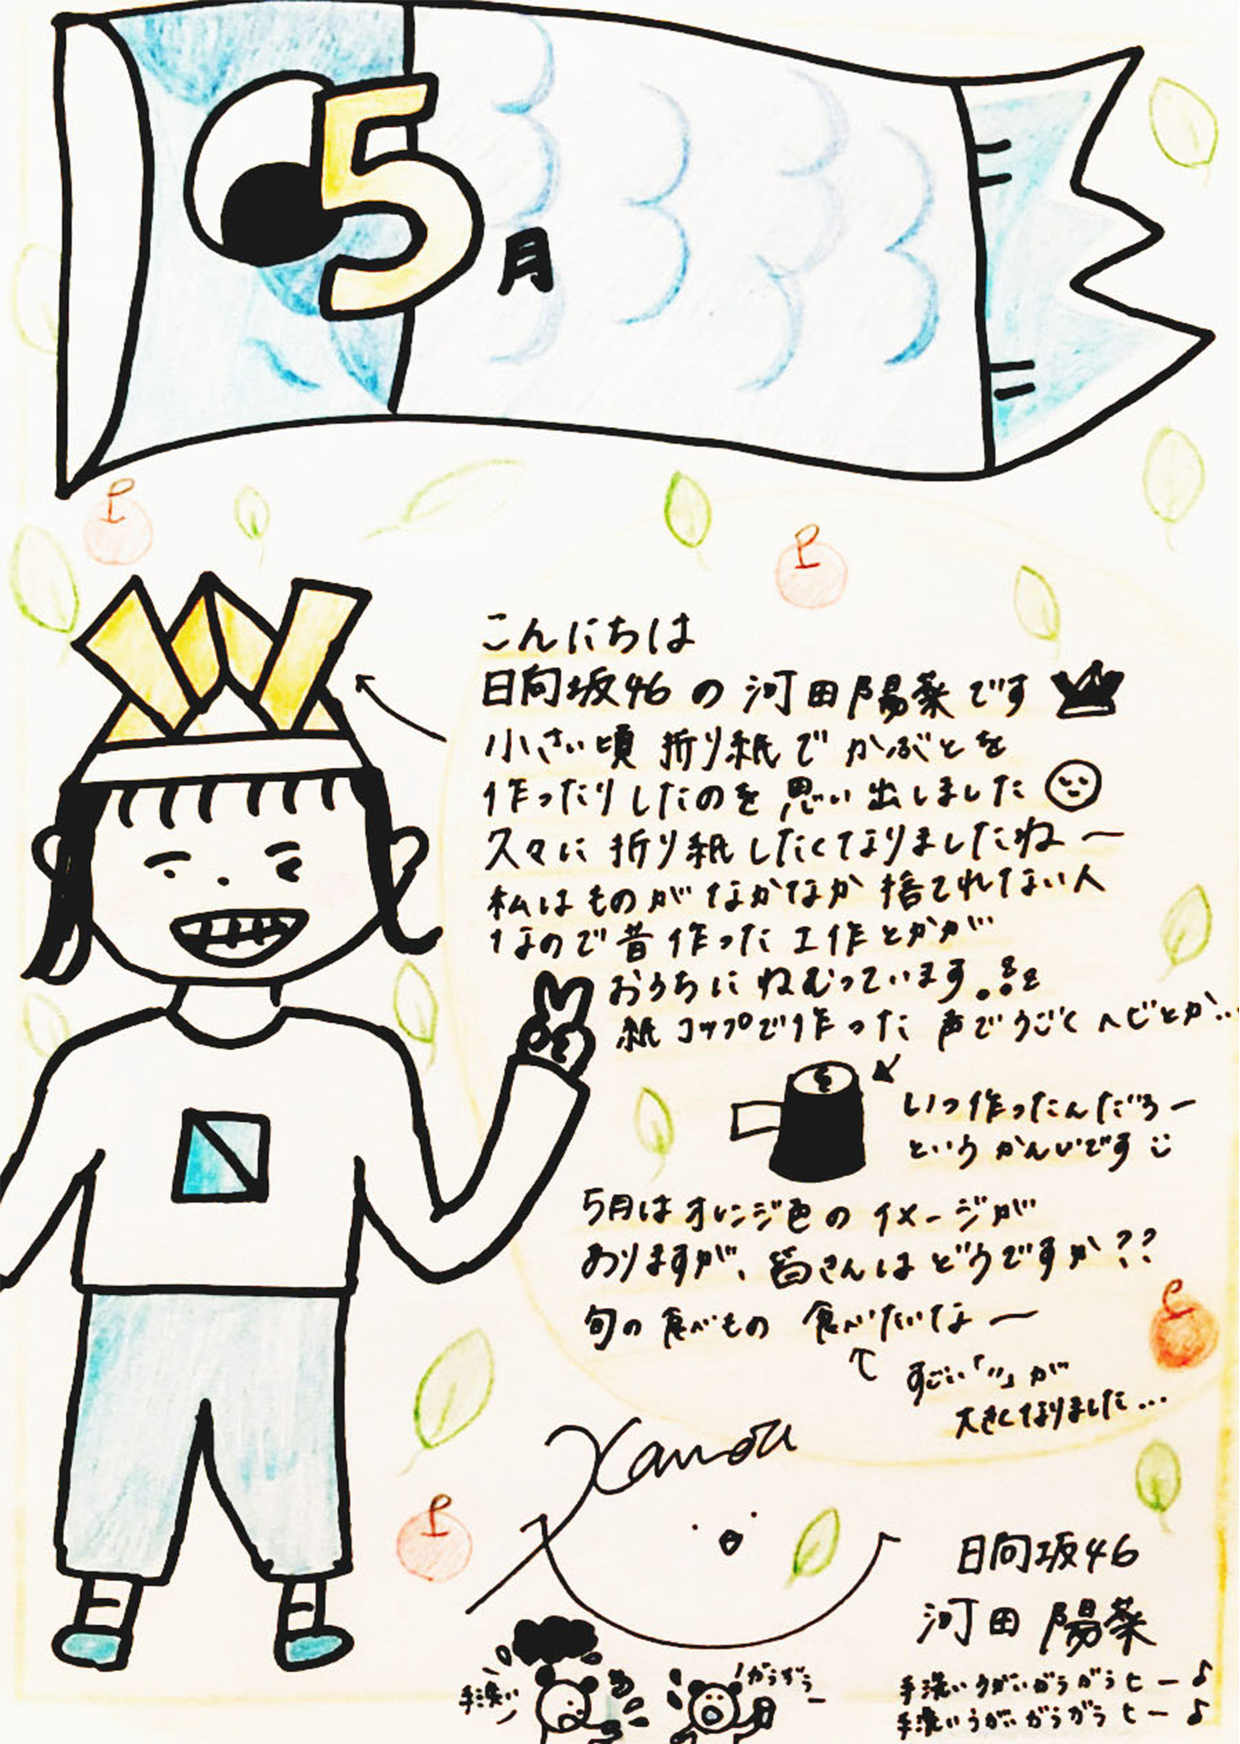 5月
こんにちは
日向坂46の河田陽菜です
小さい頃 折り紙でかぶとを
作ったりしたのを思い出しました
久々に折り紙したくなりましたねー
私はものがなかなか捨てれない人
なので昔作った工作とかが
おうちにねむっています。
紙コップで作った声でうごくヘビとか...
いつ作ったんだろー
というかんじです
5月はオレンジ色のイメージが
ありますが、皆さんはどうですか??
旬の食べもの 食べたいなー
すごい「〃」が
大きくなりました...
日向坂46
河田 陽菜
手洗い
がらがらー
手洗いうがいがらがらヒー♪
手洗いうがいがらがらヒー♪